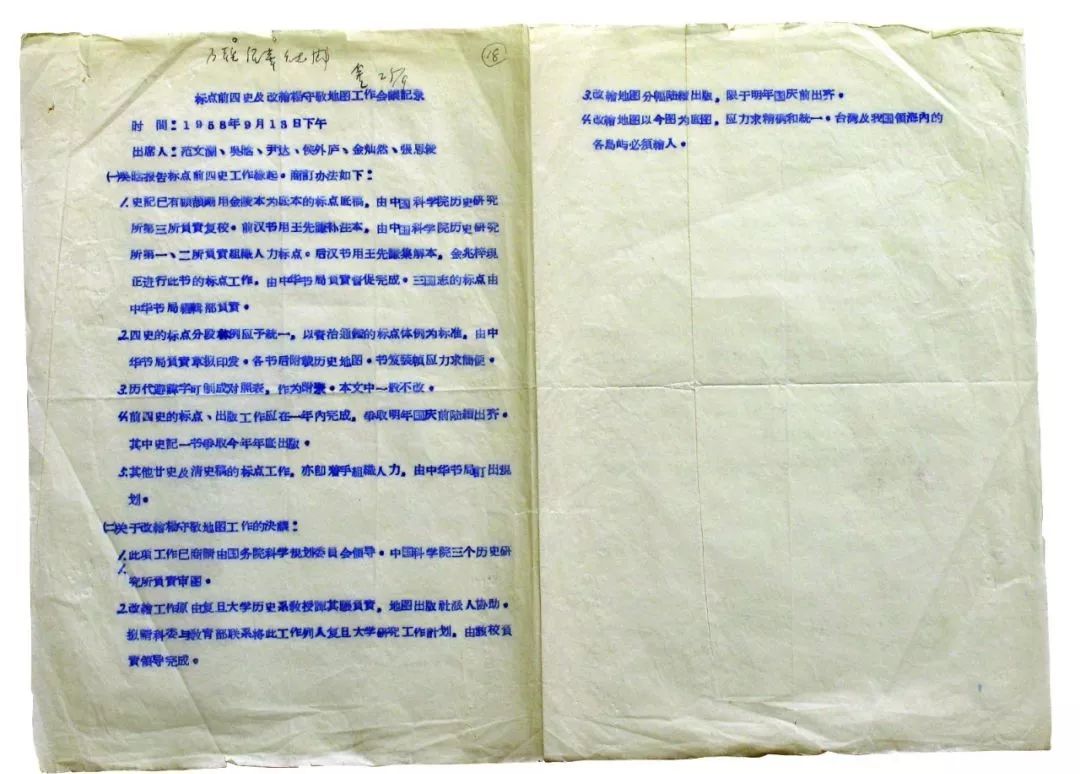 18
标点前四史及改繪楊守敬地图工作会議記录
时 間：1958年9月13日下午
出席人：范文瀾、吳晗、尹达、侯外庐、金灿然、張思俊
㈠吳晗报告标点前四史工作緣起。商訂办法如下：
1.史記已有顧頡剛用金陵本为底本的标点底稿，由中国科学院历史研究
所第三所負責复校。前汉书用王先謙补注本，由中国科学院历史研究
所第一、二所負責組織人力标点。后汉书用王先謙集解本，金兆梓現
正进行此书的标点工作，由中华书局負責督促完成。三国志的标点由
中华书局編輯部負責。
2.四史的标点分段体例应予統一，以資治通鑑的标点体例为标准，由中
华书局負責草拟印发。各书后附載历史地图。书笈裝幀应力求簡便。
3.历代避諱字可制成对照表，作为附录。本文中一般不改。
4.前四史的标点、出版工作应在一年內完成，爭取明年国庆前陆續出齐。
其中史記一书爭取今年年底出版。
5.其他廿史及清史稿的标点工作，亦即着手組織人力，由中华书局訂出規
划。
㈡关于改繪楊守敬地图工作的决議：
1.此項工作已商請由国务院科学規划委員会領导。中国科学院三个历史研
究所負責审图。
2.改繪工作原由复旦大学历史系敎授譚其驤負責，地图出版社派人协助。
拟請科委与敎育部联系将此工作列入复旦大学硏究工作計划，由該校負
責領导完成。
3.改繪地图分幅陆續出版，限于明年国庆前出齐。
4.改繪地图以今图为底图，应力求精确和統一。台灣及我国領海內的
各島屿必須繪入。